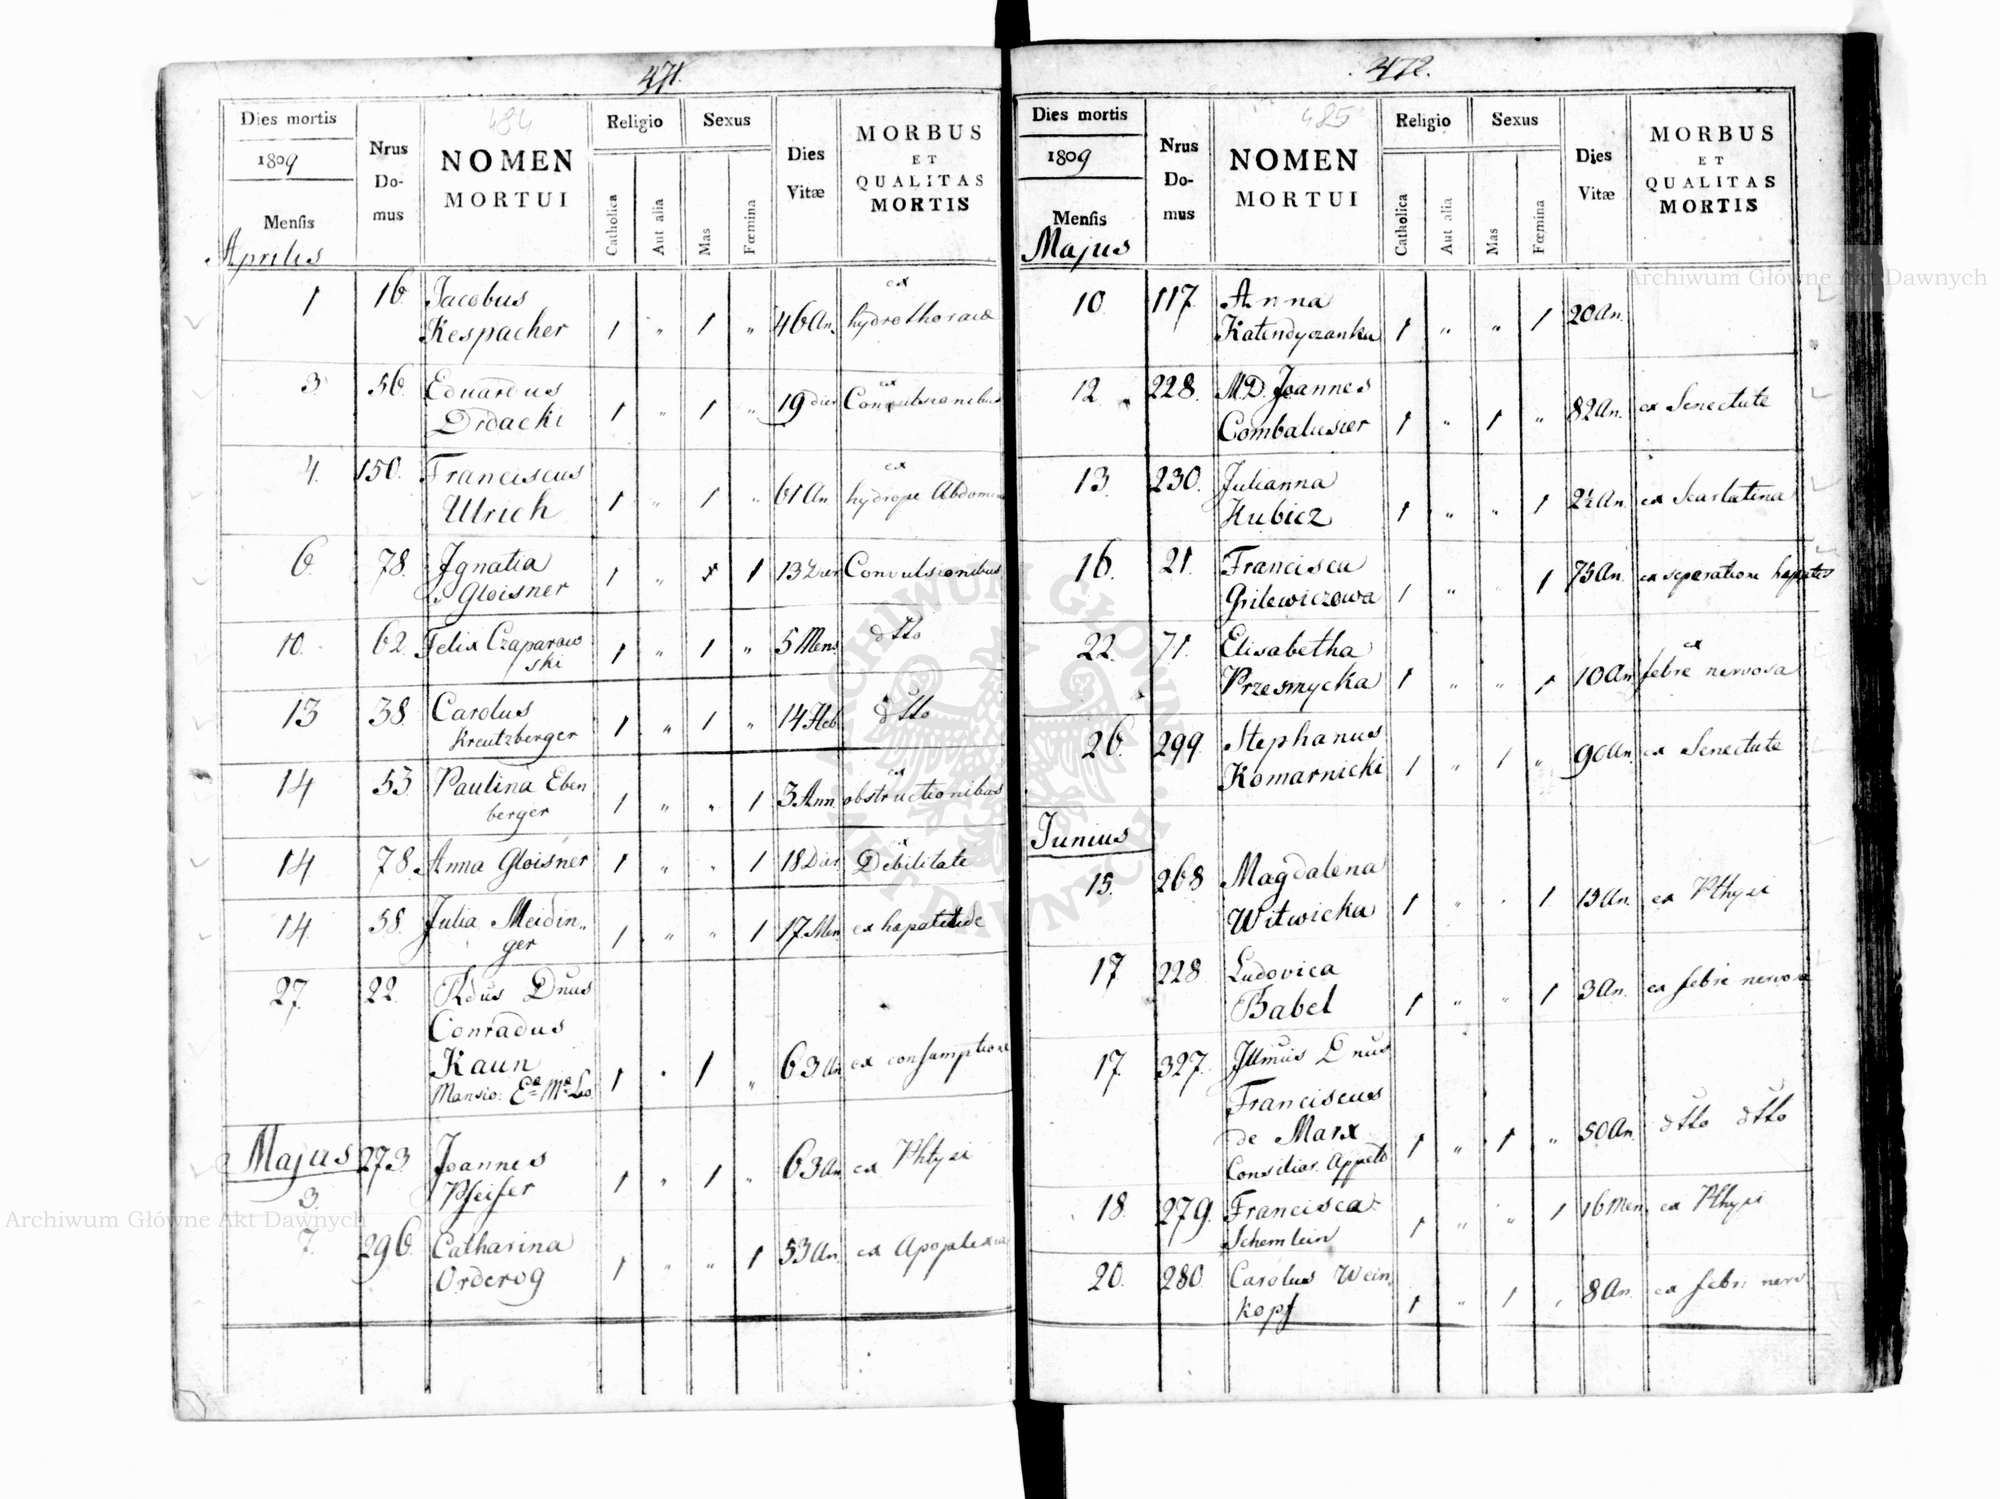 471.
484
Dies mortis
1809
Mensis
Aprilis
Nrus
Do-
mus
NOMEN
MORTUI
Religio
Catholica
Aut alia
Sexus
Mas
Fœmina
Dies
Vitæ
MORBUS
ET
QUALITAS
MORTIS
1 16 Jacobus ex
Kespacher 1 " 1 " 46 An. hydrothorace
3 56 Eduardus ex
Drdacki 1 " 1 " 19 dier Convulsionibus
4. 150. Franciscus ex
Ulrich 1 " 1 " 61 An hydrope Abdomin
6. 78. Ignatia
Gloisner 1 " 1 13 Dier Convulsionibus
10. 62. Felix Czaparow
ski 1 " 1 " 5 Mens dtto
13 38. Carolus
Kreutzberger 1 " 1 " 14 Heb dtto
14 53 Paulina Eben ex
berger 1 " " 1 3 Ann obstructionibus
14 78. Anna Gloisner 1 " " 1 18 Dier ex Debilitate
14 58. Julia Meidin„
ger 1 " " 1 17. Men ex
27. 22. Rdus Dnus
Conradus
Kaun 1 " 1 " 63 An ex consumptione
Mansio:
Majus 273 Joannes
3. Pfeifer 1 " 1 " 63 An ex Phtysi
7. 296. Catharina
Orderog 1 " " 1 53 An. ex Apoplexia
472.
485
Dies mortis
1809
Mensis
Majus
Nrus
Do-
mus
NOMEN
MORTUI
Religio
Catholica
Aut alia
Sexus
Mas
Fœmina
Dies
Vitæ
MORBUS
ET
QUALITAS
MORTIS
10. 117. Anna
Katindyczanka 1 " " 1 20 An.
12. 228. MD. Joannes
Combalusier 1 " 1 " 82 An. ex Senectute
13. 230. Julianna
Kubicz 1 " " 1 2½ An. ex Scarlatina
16. 21. Francisca
Grilewiczowa 1 " " 1 75 An. ex separatione hepatis
22. 71. Elisabetha ex
Przesmycka 1 " " 1 10 An febre nervosa
26. 299. Stephanus
Komarnicki 1 " 1 " 90 An. ex Senectute
Junius
15. 268 Magdalena
Witwicka 1 " " 1 15 An. ex Pthysi
17 228. Ludovica
Babel 1 " " 1 3 An. ex febre nervosa
17. 327. Illmus Dnus
Franciscus
de Marx 1 " 1 " 50 An. dtto dtto
Consiliar. Appell
18. 279. Francisca
Schemlein 1 " " 1 16 Men ex Pthysi
20. 280 Carolus Wein
kopf 1 " 1 " 8 An. ex febri nerv
Archiwum Główne Akt Dawnych
Archiwum Główne Akt Dawnych
ARCHIWUM GŁÓWNE · AKT DAWNYCH ·